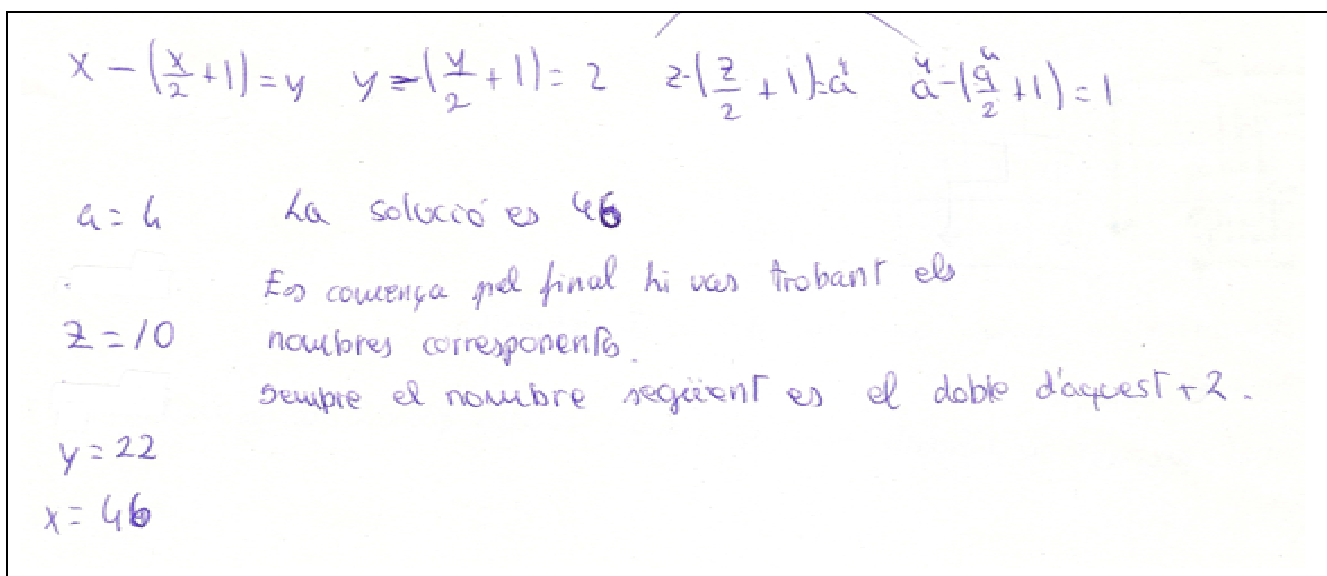 x - (x/2 + 1) = y   y = (y/2 + 1) = 2   z - (z/2 + 1) = a   a - (a/2 + 1) = 1
a = 4   La solució es 46
Es comença pel final hi vas trobant els
z = 10   nombres corresponents.
sempre el nombre següent es el doble d'aquest + 2.
y = 22
x = 46